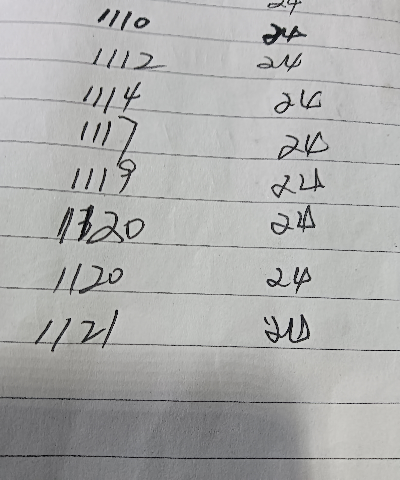 24
1110 24
1112 24
1114 24
1117 24
1119 24
1120 24
1120 24
1121 24